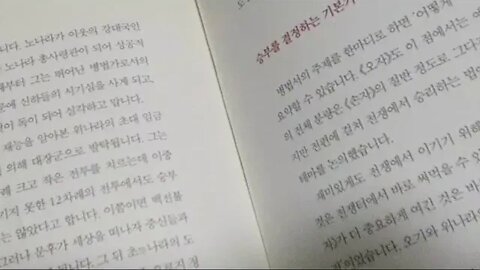 니다. 노나라가 이웃의 강대국인
노나라 총사령관이 되어 성공적
부터 그는 뛰어난 병법가로서의
문에 신하들의 시기심을 사게 되고
이 독이 되어 삭하고 맙니다.
재능을 알아본 위나라의 초대 임금
의해 대장군으로 발탁됩니다. 그는
크고 작은 전투를 치르는데 이중
기지 못한 12차례의 전투에서도 승부
는 않았다고 합니다. 이쯤이면 백전불
그러나 문후가 세상을 떠나자 중신들과
니다. 그 뒤 초나라의 도
승부를 결정하는 기본기
병법서의 주제를 한마디로 하면 '어떻게
요약할 수 있습니다. 《오자》도 이 점에서는 예
의 전체 분량은 《손자》의 절반 정도로, 그다
지만 전편에 걸쳐 전쟁에서 승리하는 법에
테마를 논의했습니다.
재미있게도 전쟁에서 이기기 위해
것은 전쟁터에서 바로 써먹을 수 있
가 더 중요하게 여긴 것은 바
이었습니다. 오기와 위나라의